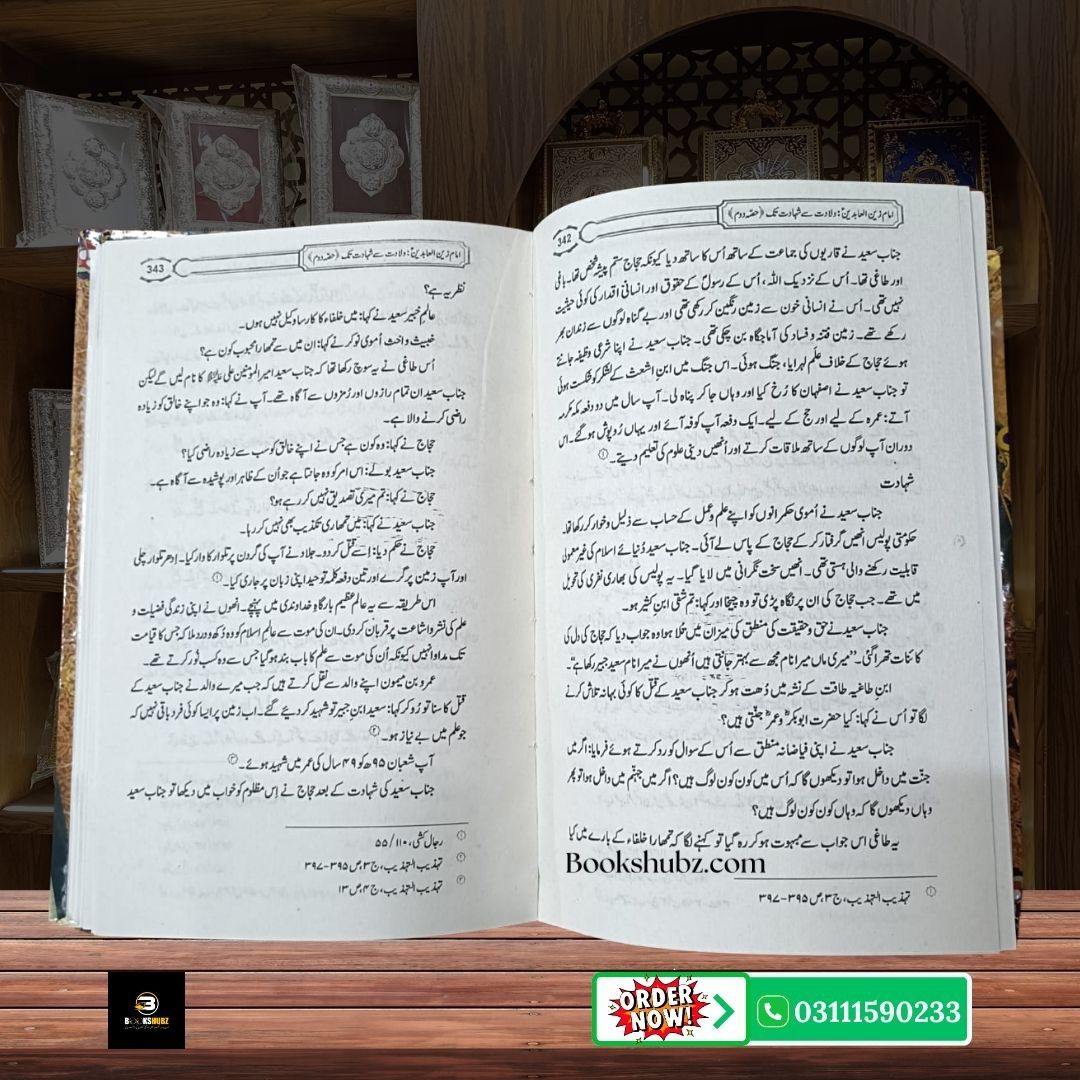 امام زین العابدینؑ: ولادت سے شہادت تک (حصہ دوم)
342
جناب سعید نے قاریوں کی جماعت کے ساتھ اُس کا ساتھ دیا کیونکہ حجاج ستم پیشہ شخص تھا۔ باغی
اور طاغی تھا۔ اُس کے نزدیک اللہ، اُس کے رسولؐ کے حقوق اور انسانی اقدار کی کوئی حیثیت
نہیں تھی۔ اُس نے انسانی خون سے زمین رنگین کر رکھی تھی اور بے گناہ لوگوں سے زندان بھر
رکھے تھے۔ زمین فتنہ و فساد کی آماجگاہ بن چکی تھی۔ جناب سعید نے اپنا شرعی وظیفہ جانتے
ہوئے حجاج کے خلاف علَم لہرایا، جنگ ہوئی۔ اس جنگ میں ابنِ اشعث کے لشکر کو شکست ہوئی
تو جناب سعید نے اصفہان کا رُخ کیا اور وہاں جا کر پناہ لی۔ آپ سال میں دو دفعہ مکہ مکرمہ
آتے: عمرہ کے لیے اور حج کے لیے۔ ایک دفعہ آپ کوفہ آئے اور یہاں رُوپوش ہوگئے۔ اس
دوران آپ لوگوں کے ساتھ ملاقات کرتے اور اُنھیں دینی علوم کی تعلیم دیتے۔①
شہادت
جناب سعید نے اُموی حکمرانوں کو اپنے علم و عمل کے حساب سے ذلیل و خوار کر رکھا تھا۔
حکومتی پولیس اُنھیں گرفتار کرکے حجاج کے پاس لے آئی۔ جناب سعید دُنیائے اسلام کی غیر معمولی
قابلیت رکھنے والی ہستی تھی۔ انھیں سخت نگرانی میں لایا گیا۔ یہ پولیس کی بھاری نفری کی تحویل
میں تھے۔ جب حجاج کی ان پر نگاہ پڑی تو وہ چیخا اور کہا: تم شقی ابنِ کثیر ہو۔
جناب سعید نے حق و حقیقت کی منطق کی میزان میں تُلا ہوا وہ جواب دیا کہ حجاج کی دل کی
کائنات تھرا گئی۔ ”میری ماں میرا نام مجھ سے بہتر جانتی ہیں اُنھوں نے میرا نام سعید جبیر رکھا ہے“۔
ابنِ طاغیہ طاقت کے نشہ میں دُھت ہوکر جناب سعید کے قتل کا کوئی بہانہ تلاش کرنے
لگا تو اُس نے کہا: کیا حضرت ابوبکرؓ و عمرؓ جنّتی ہیں؟
جناب سعید نے اپنی فیاضانہ منطق سے اُس کے سوال کو رد کرتے ہوئے فرمایا: اگر میں
جنّت میں داخل ہوا تو دیکھوں گا کہ اُس میں کون کون لوگ ہیں؟ اگر میں جہنّم میں داخل ہوا تو پھر
وہاں دیکھوں گا کہ وہاں کون کون لوگ ہیں؟
یہ طاغی اس جواب سے مبہوت ہوکر رہ گیا تو کہنے لگا کہ تمھارا خلفاء کے بارے میں کیا
Bookshubz.com
① تہذیب التہذیب، ج۳، ص ۳۹۵-۳۹۷
امام زین العابدینؑ: ولادت سے شہادت تک (حصہ دوم)
343
نظریہ ہے؟
عالمِ خبیر سعید نے کہا: میں خلفاء کا کارسا وکیل نہیں ہوں۔
خبیث و اخبث اُموی نوکر نے کہا: ان میں سے تمھارا محبوب کون ہے؟
اُس طاغی نے یہ سوچ رکھا تھا کہ جناب سعید امیرالمومنین علی علیہ السلام کا نام لیں گے لیکن
جناب سعید ان تمام رازوں اور رُمزوں سے آگاہ تھے۔ آپ نے کہا: وہ جو اپنے خالق کو زیادہ
راضی کرنے والا ہے۔
حجاج نے کہا: وہ کون ہے جس نے اپنے خالق کو سب سے زیادہ راضی کیا؟
جناب سعید بولے: اس امر کو وہ جانتا ہے جو اُن کے ظاہر اور پوشیدہ سے آگاہ ہے۔
حجاج نے کہا: تم میری تصدیق نہیں کر رہے ہو؟
جناب سعید نے کہا: میں تمھاری تکذیب بھی نہیں کر رہا۔
حجاج نے حکم دیا: اِسے قتل کر دو۔ جلاد نے آپ کی گردن پر تلوار کا وار کیا۔ اِدھر تلوار چلی
اور آپ زمین پر گرے اور تین دفعہ کلمہ توحید اپنی زبان پر جاری کیا۔①
اس طریقہ سے یہ عالمِ عظیم بارگاہِ خداوندی میں پہنچے۔ انھوں نے اپنی زندگی فضیلت و
علم کی نشر و اشاعت پر قربان کر دی۔ ان کی موت سے عالمِ اسلام کو وہ دُکھ و درد ملا کہ جس کا قیامت
تک مداوا نہیں کیونکہ اُن کی موت سے علم کا باب بند ہوگیا جس سے وہ کسب نُور کرتے تھے۔
عمرو بن میمون اپنے والد سے نقل کرتے ہیں کہ جب میرے والد نے جناب سعید کے
قتل کا سنا تو رُو کر کہا: سعید ابنِ جبیر تو شہید کر دیے گئے۔ اب زمین پر ایسا کوئی فرد باقی نہیں کہ
جو علم میں بے نیاز ہو۔②
آپ شعبان ۹۵ھ کو ۴۹ سال کی عمر میں شہید ہوئے۔③
جناب سعید کی شہادت کے بعد حجاج نے اِس مظلوم کو خواب میں دیکھا تو جناب سعید
① رجال کشی، ۱۱۰/۵۵
② تہذیب التہذیب، ج۳، ص ۳۹۵-۳۹۷
③ تہذیب التہذیب، ج۴، ص ۱۳
BOOKSHUBZ
ORDER NOW!
03111590233